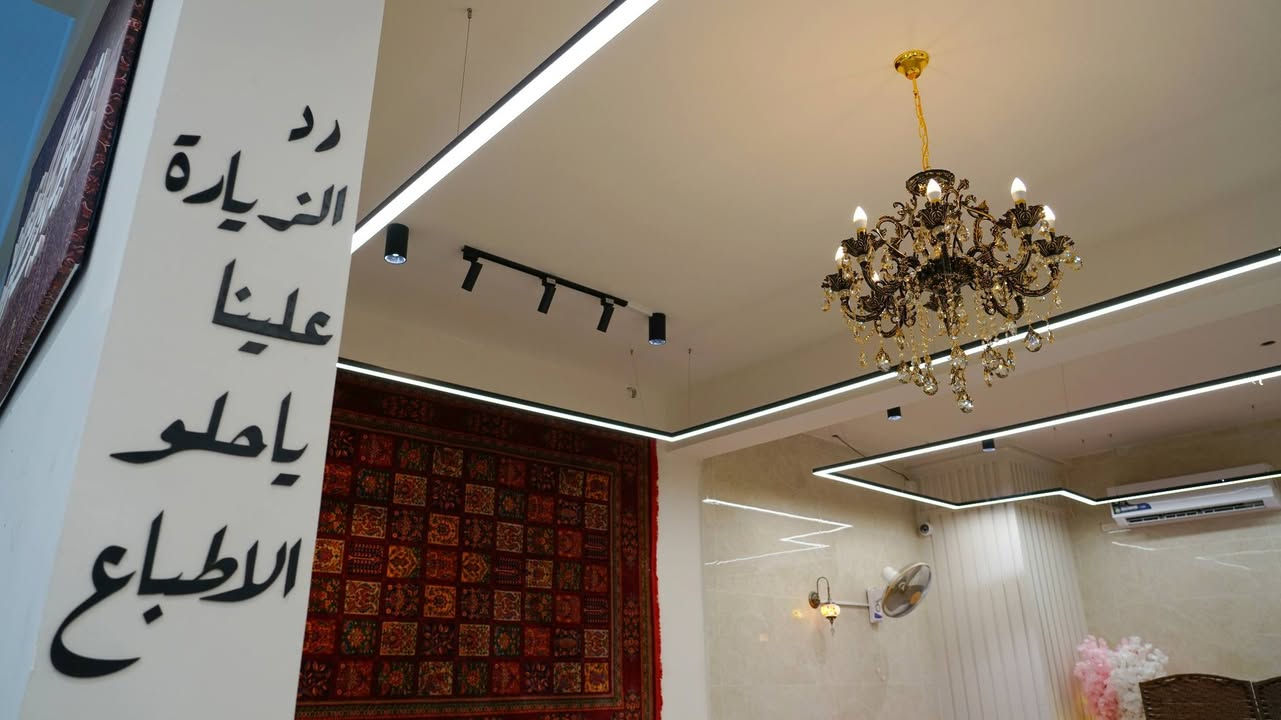 رد
الزيارة
علينا
ياحلو
الاطباع